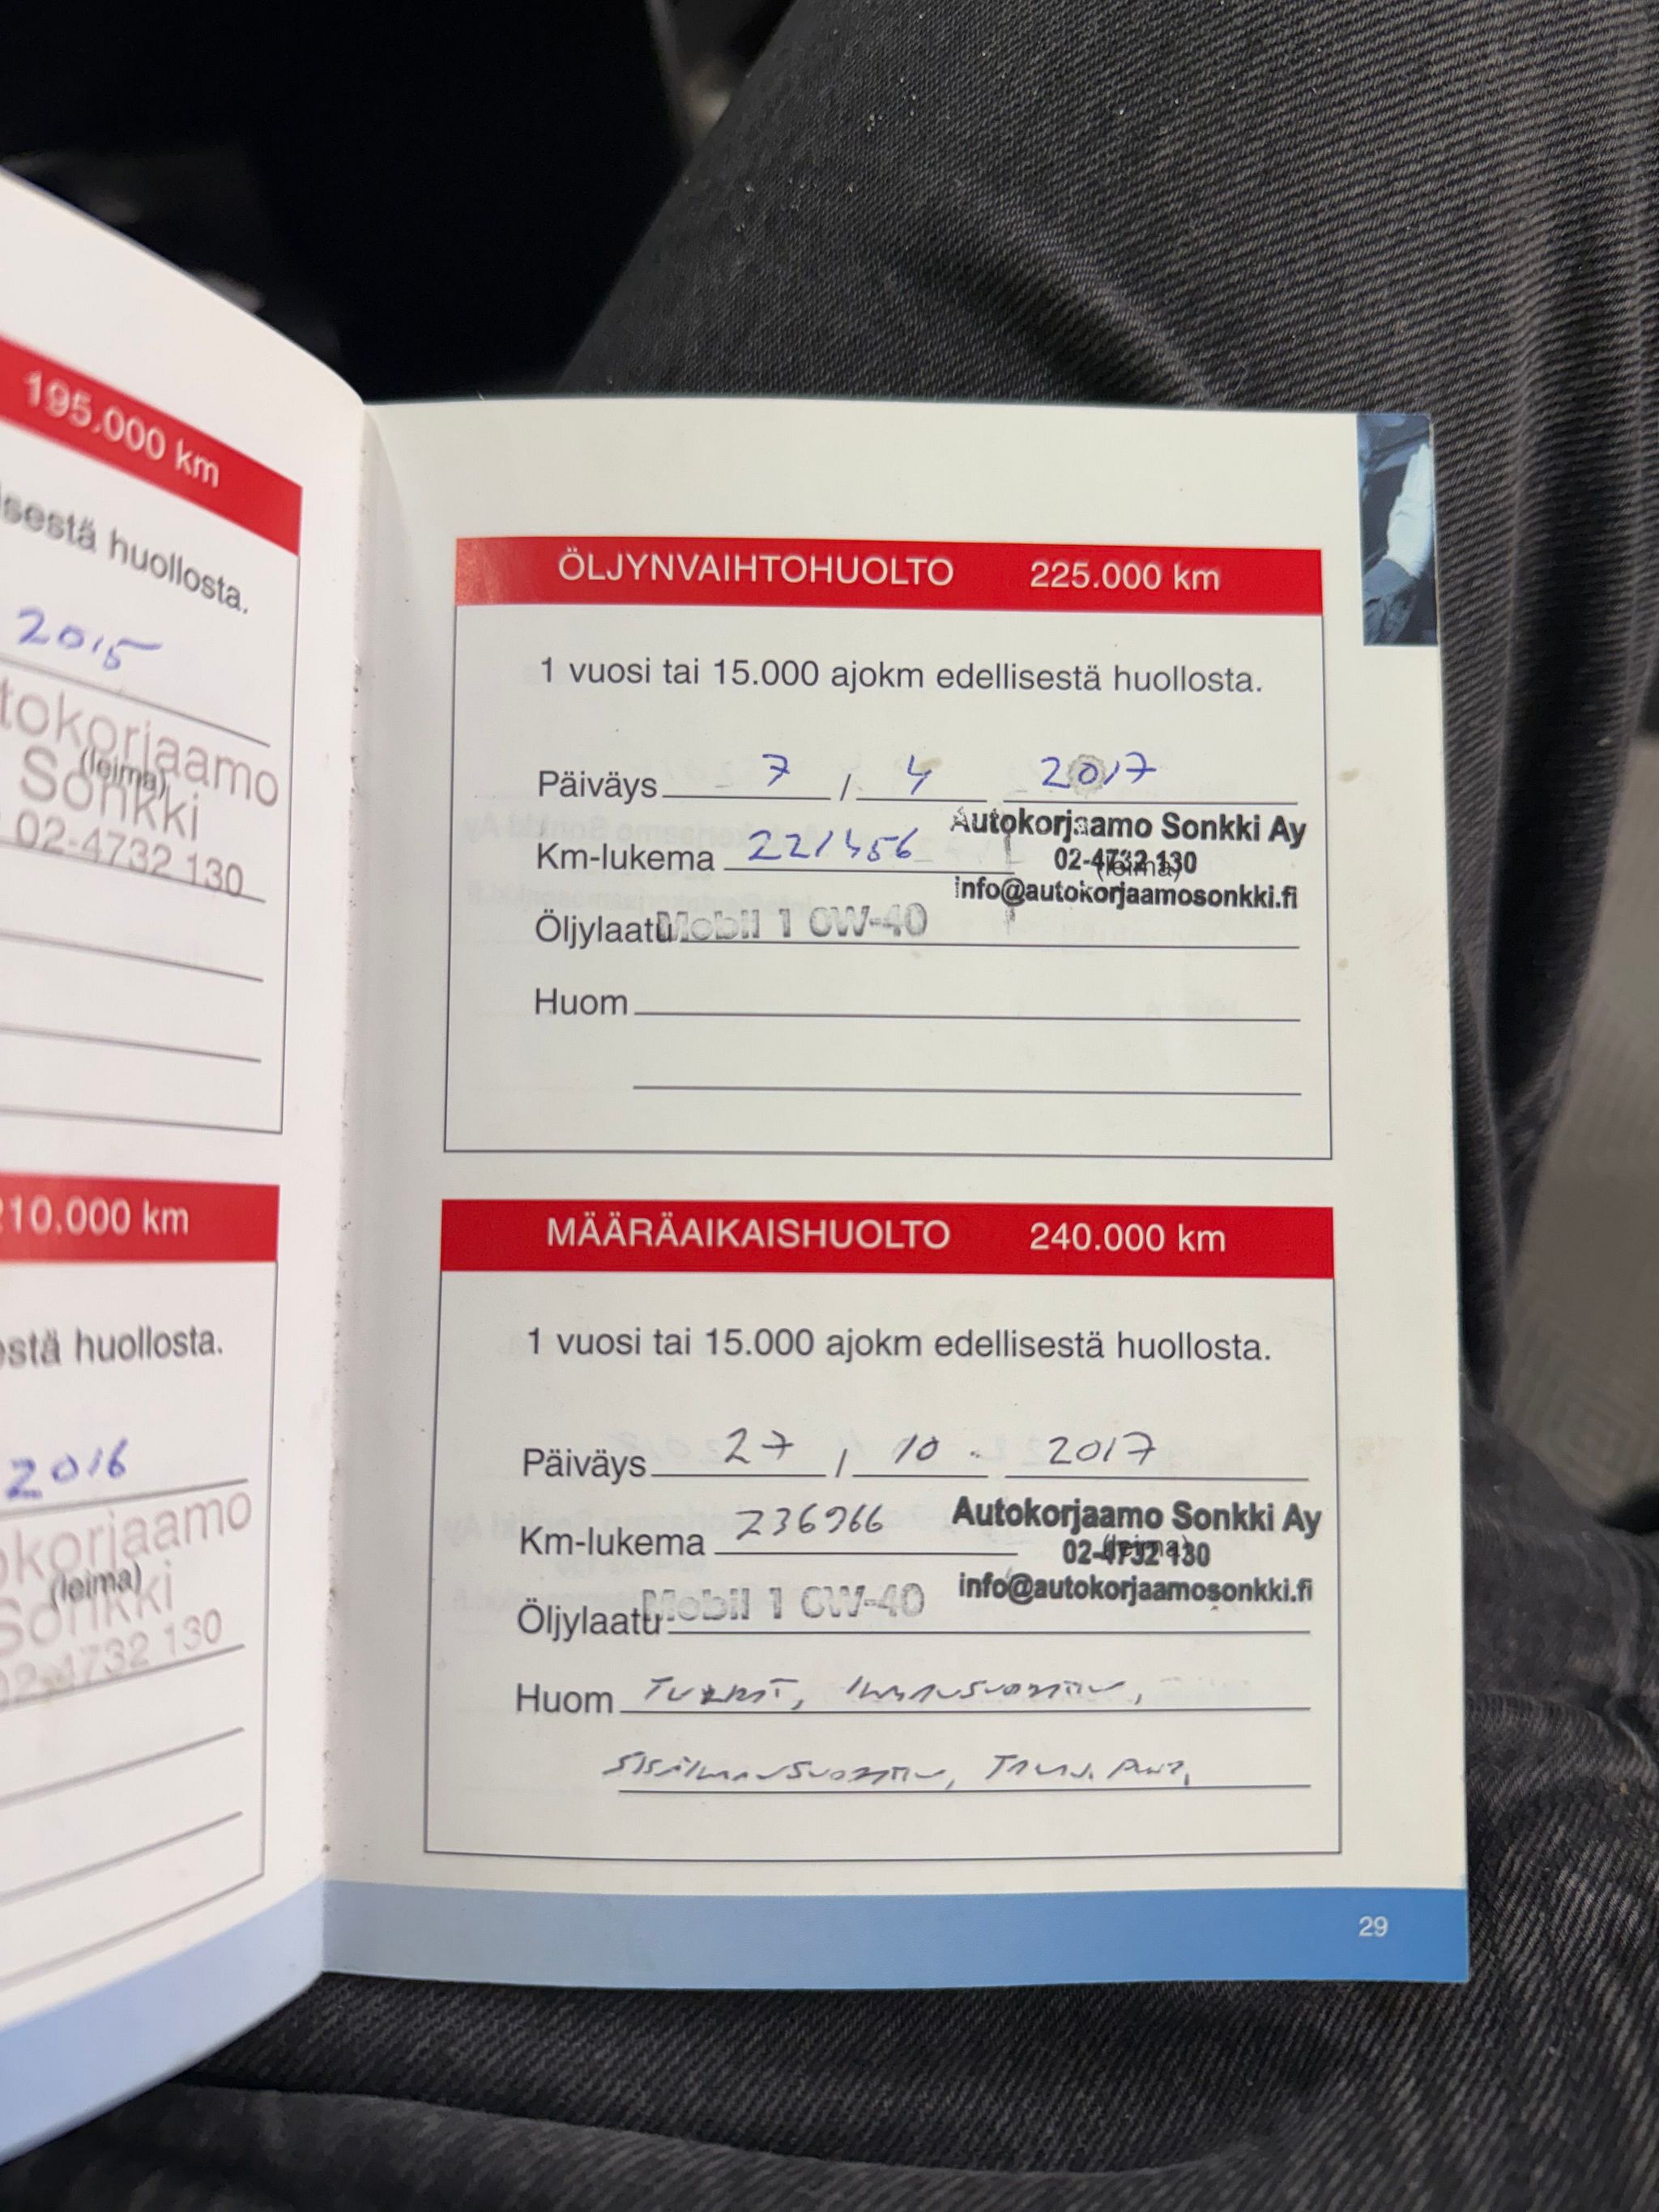 195.000 km
sestä huollosta.
2015
tokorjaamo
(leima)
Sonkki
02-4732 130
210.000 km
estä huollosta.
2016
okorjaamo
(leima)
Sonkki
02-4732 130
ÖLJYNVAIHTOHUOLTO 225.000 km
1 vuosi tai 15.000 ajokm edellisestä huollosta.
Päiväys 7 / 4 2017
Autokorjaamo Sonkki Ay
Km-lukema 221456
02-4732 130
(leima)
info@autokorjaamosonkki.fi
Öljylaatu Mobil 1 0W-40
Huom
MÄÄRÄAIKAISHUOLTO 240.000 km
1 vuosi tai 15.000 ajokm edellisestä huollosta.
Päiväys 27 / 10 2017
Autokorjaamo Sonkki Ay
Km-lukema 236966
02-4732 130
(leima)
info@autokorjaamosonkki.fi
Öljylaatu Mobil 1 0W-40
Huom Ilmansuodatin,
Sisäilmansuodatin,
29